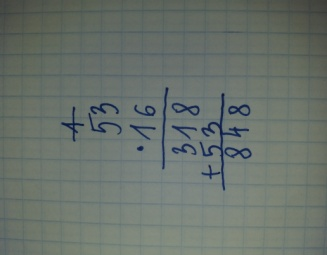 1
53
·16
318
+53
848